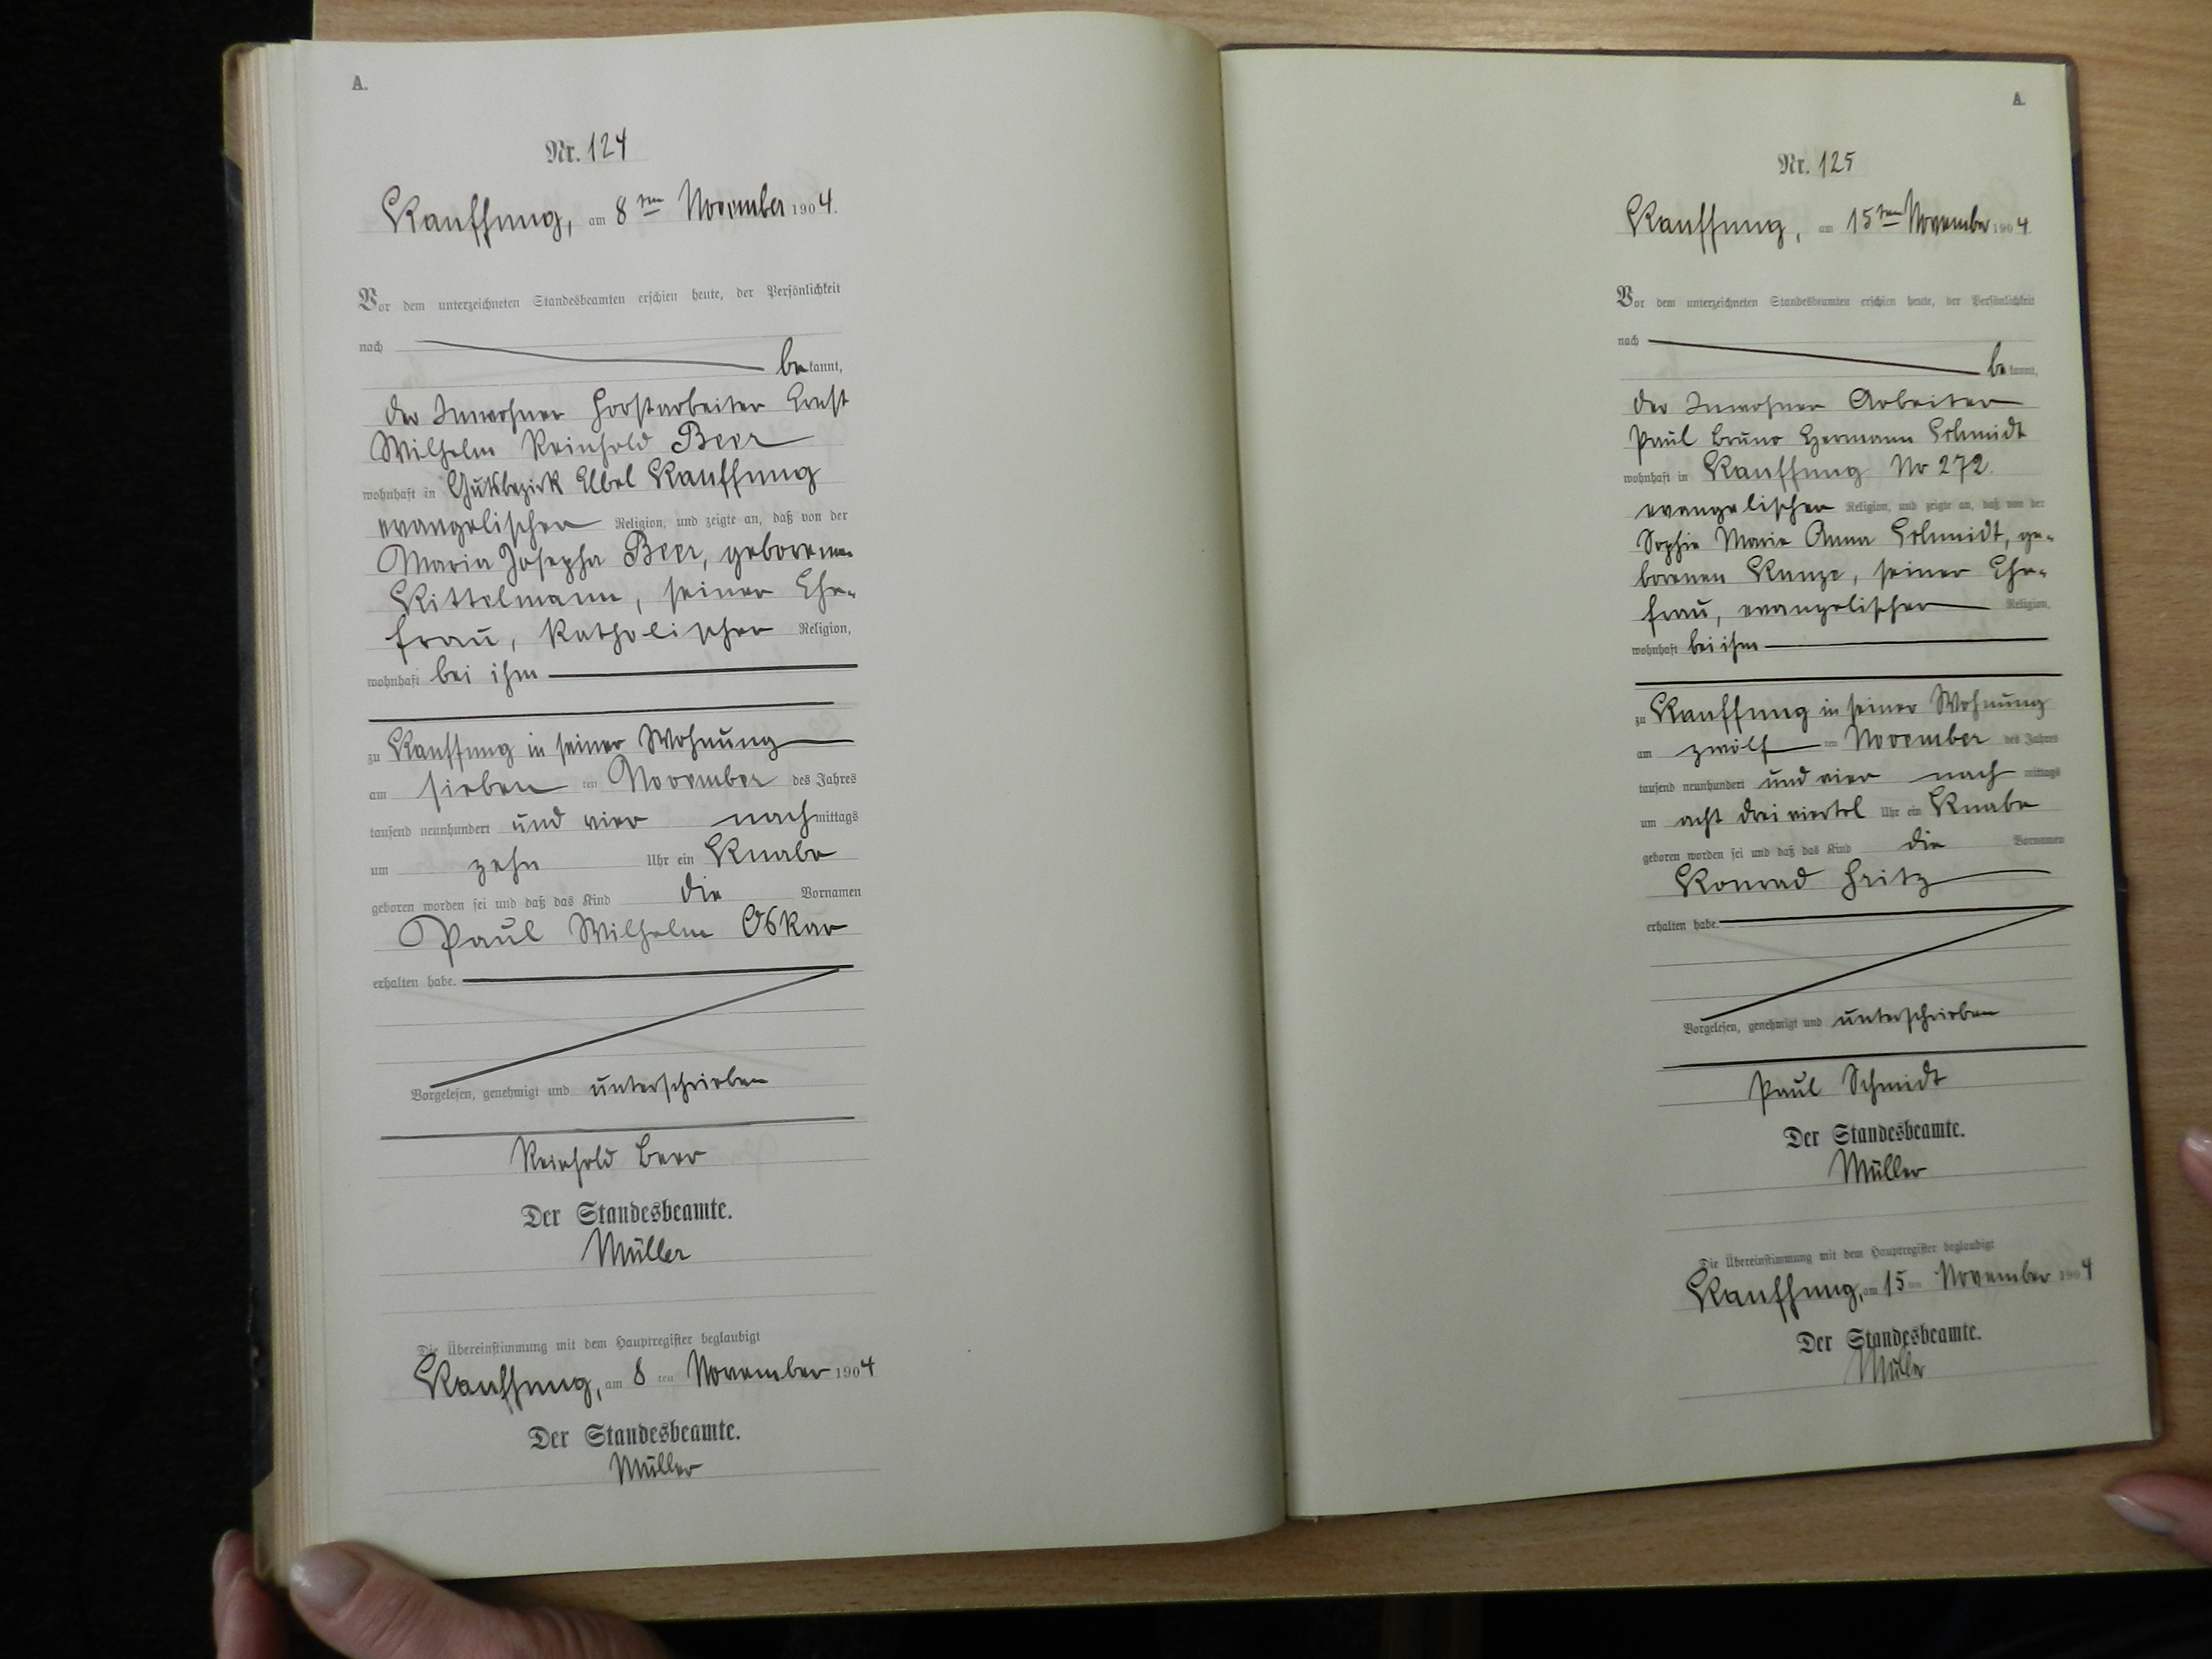 A.
Nr. 124
Kauffung, am 8ten November 1904.
Vor dem unterzeichneten Standesbeamten erschien heute, der Persönlichkeit
nach
bekannt,
der Inwohner Forstarbeiter Ernst
Wilhelm Reinhold Beer
wohnhaft in Gutsbezirk Elbel Kauffung
evangelischer Religion, und zeigte an, daß von der
Maria Josepha Beer, geborenen
Kittelmann, seiner Ehe-
frau, katholischer Religion,
wohnhaft bei ihm
zu Kauffung in seiner Wohnung
am sieben ten November des Jahres
tausend neunhundert und vier nachmittags
um zehn Uhr ein Knabe
geboren worden sei und daß das Kind die Vornamen
Paul Wilhelm Oskar
erhalten habe.
Vorgelesen, genehmigt und unterschrieben
Reinhold Beer
Der Standesbeamte.
Müller
Die Übereinstimmung mit dem Hauptregister beglaubigt
Kauffung, am 8 ten November 1904
Der Standesbeamte.
Müller
A.
Nr. 125
Kauffung, am 15ten November 1904.
Vor dem unterzeichneten Standesbeamten erschien heute, der Persönlichkeit
nach
bekannt,
der Inwohner Arbeiter
Paul Bruno Hermann Schmidt
wohnhaft in Kauffung No 272.
evangelischer Religion, und zeigte an, daß von der
Sophie Marie Anna Schmidt, ge-
borenen Kunze, seiner Ehe-
frau, evangelischer Religion,
wohnhaft bei ihm
zu Kauffung in seiner Wohnung
am zwölf ten November des Jahres
tausend neunhundert und vier nachmittags
um acht dreiviertel Uhr ein Knabe
geboren worden sei und daß das Kind die Vornamen
Konrad Fritz
erhalten habe.
Vorgelesen, genehmigt und unterschrieben
Paul Schmidt
Der Standesbeamte.
Müller
Die Übereinstimmung mit dem Hauptregister beglaubigt
Kauffung, am 15 ten November 1904
Der Standesbeamte.
Müller